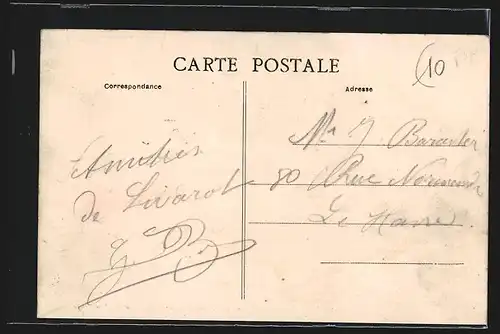 CARTE POSTALE
10
Correspondance
Adresse
Amitiés
de Livarot
Mr J.
80 Rue
Le Havre